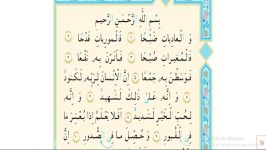 بِسْمِ اللَّهِ الرَّحْمَـٰنِ الرَّحِيمِ
وَ الْعَادِيَاتِ ضَبْحًا ١ فَالْمُورِيَاتِ قَدْحًا ٢
فَالْمُغِيرَاتِ صُبْحًا ٣ فَأَثَرْنَ بِهِ نَقْعًا ٤
فَوَسَطْنَ بِهِ جَمْعًا ٥ إِنَّ الْإِنْسَانَ لِرَبِّهِ لَكَنُودٌ
٦ وَ إِنَّهُ عَلَىٰ ذَٰلِكَ لَشَهِيدٌ ٧ وَ إِنَّهُ
لِحُبِّ الْخَيْرِ لَشَدِيدٌ ٨ أَفَلَا يَعْلَمُ إِذَا بُعْثِرَ مَا
فِي الْقُبُورِ ٩ وَ حُصِّلَ مَا فِي الصُّدُورِ ١٠ إِنَّ